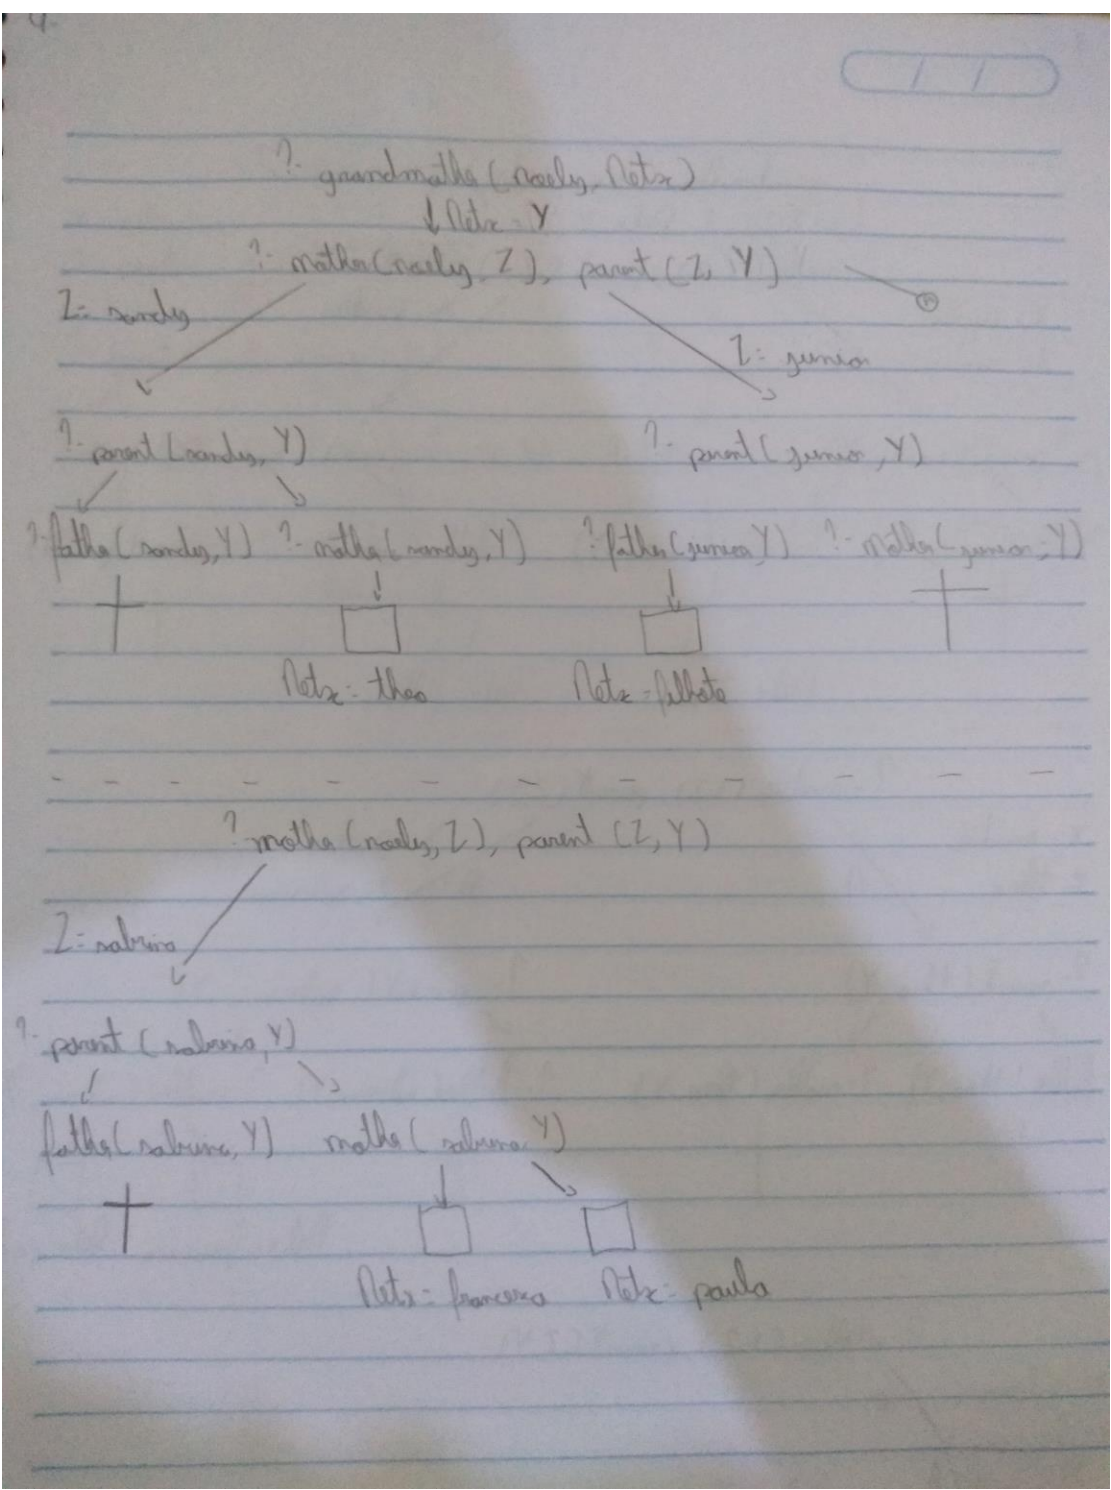 4.
?- grandmother(noely, Netx)
↓ Netx = Y
?- mother(noely, Z), parent(Z, Y)
Z = sandy
Z = junior
?- parent(sandy, Y) ?- parent(junior, Y)
?- father(sandy, Y) ?- mother(sandy, Y) ?- father(junior, Y) ?- mother(junior, Y)
Netx = theo Netx = filhote
? mother(noely, Z), parent(Z, Y)
Z = sabrina
?- parent(sabrina, Y)
father(sabrina, Y) mother(sabrina, Y)
Netx = Netx = paula